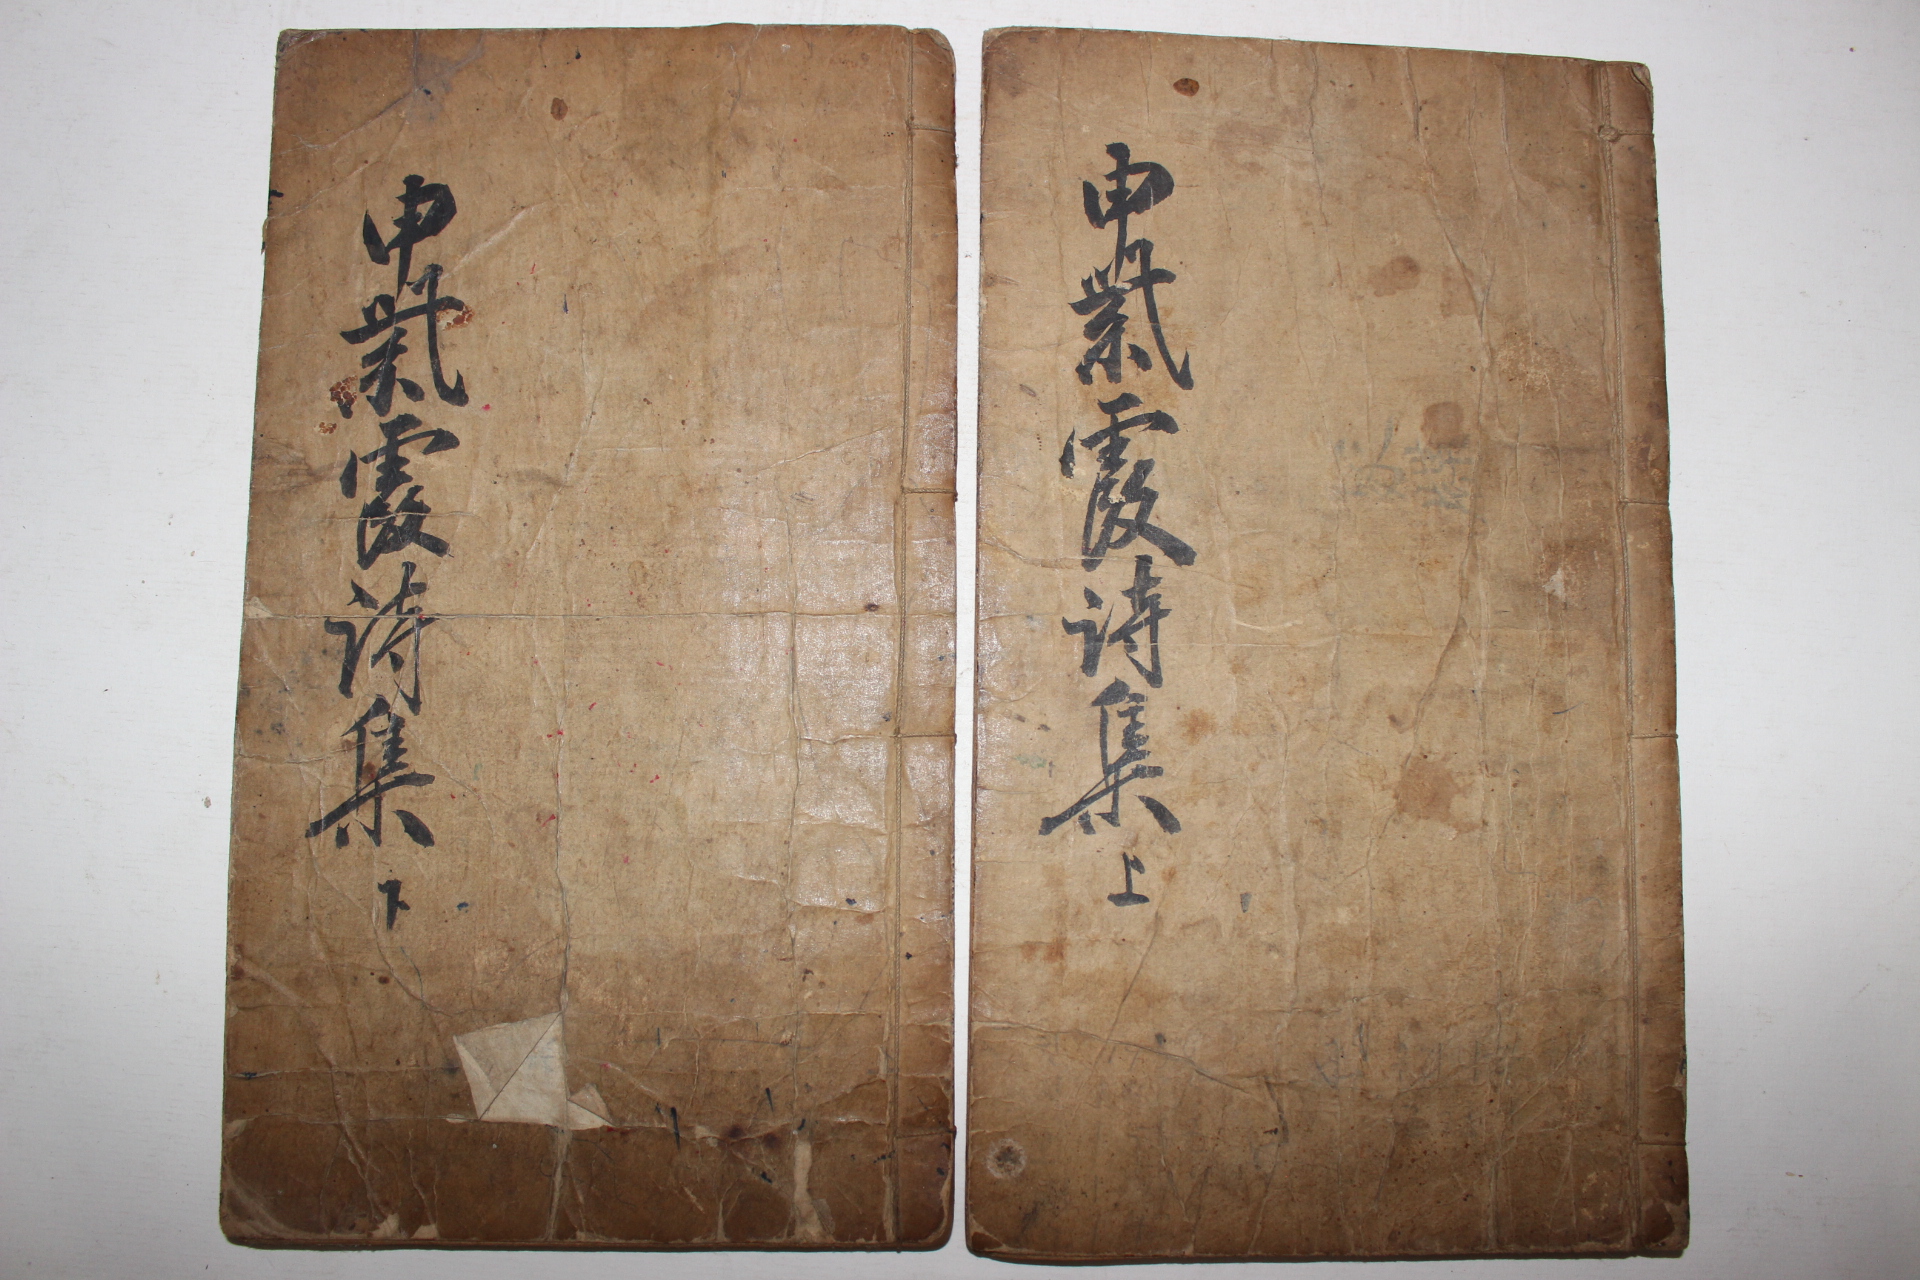 申紫霞詩集 上
申紫霞詩集 下